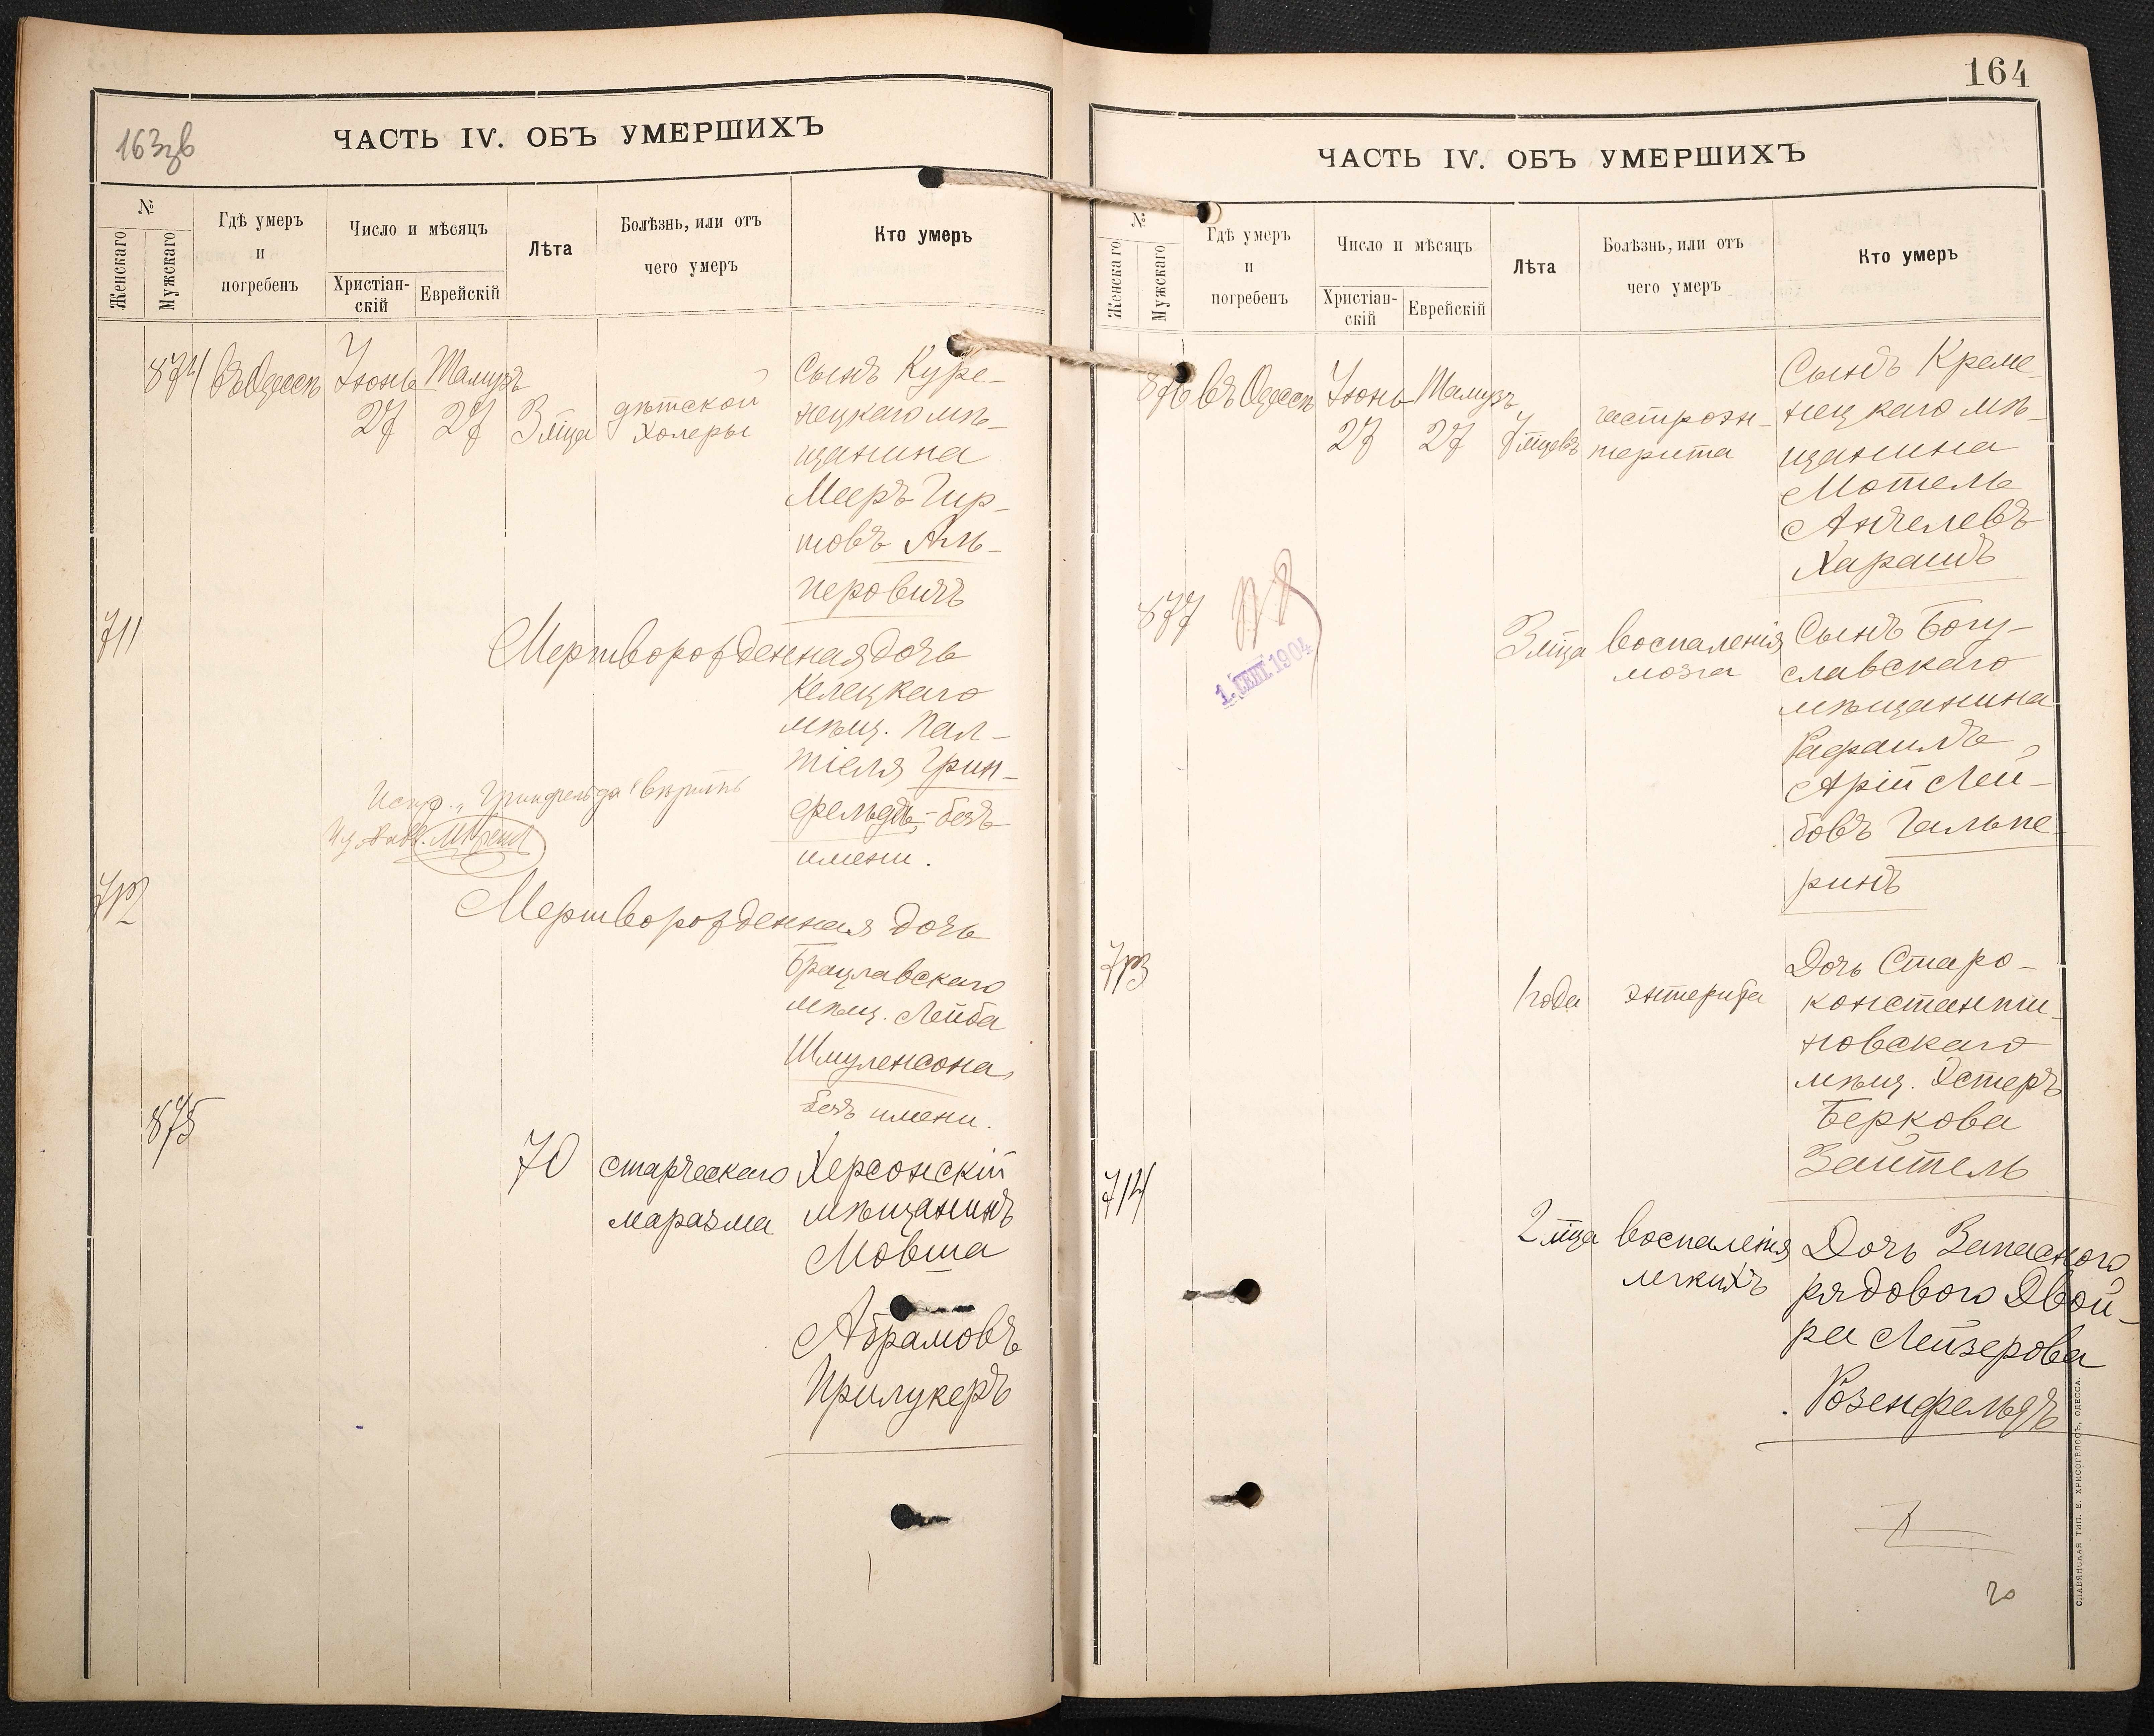 163зв
ЧАСТЬ IV. ОБЪ УМЕРШИХЪ
№
Женскаго
Мужскаго
Гдѣ умеръ
и
погребенъ
Число и мѣсяцъ
Христіан-
скій
Еврейскій
Лѣта
Болѣзнь, или отъ
чего умеръ
Кто умеръ
874 въ Одессѣ Іюнь Тамузъ
27 27 3 мца дѣтской
холеры
Сынъ Куре-
нецкаго мѣ-
щанина
Мееръ Гир-
шовъ Аль-
перовичъ
711 Мертворожденная дочь
Келецкаго
мѣщ. Пал-
тіеля Грин-
фельда, - безъ
имени.
Испр. „Гринфельда" вѣрить
712 Мертворожденная дочь
Брацлавскаго
мѣщ. Лейба
Шмуленсона,
безъ имени.
875
70 старческаго
маразма
Херсонскій
мѣщанинъ
Мовша
Абрамовъ
Прилукеръ
164
ЧАСТЬ IV. ОБЪ УМЕРШИХЪ
№
Женскаго
Мужскаго
Гдѣ умеръ
и
погребенъ
Число и мѣсяцъ
Христіан-
скій
Еврейскій
Лѣта
Болѣзнь, или отъ
чего умеръ
Кто умеръ
876 въ Одессѣ Іюнь Тамузъ
27 27 7 мцевъ гастроэн-
терита
Сынъ Креме-
нецкаго мѣ-
щанина
Мотель
Анчелевъ
Харашъ
877
1. СЕНТ. 1904
3 мца воспаленія
мозга
Сынъ Богу-
славскаго
мѣщанина
Рафаилъ
Арій Лей-
бовъ Гальпе-
ринъ
713
1 года энтерита
Дочь Старо-
константи-
новскаго
мѣщ. Эстеръ
Беркова
Зайтель
714
2 мца воспаленія
легкихъ
Дочь Запаснаго
рядового Двой-
ра Лейзерова
Розенфельдъ
20
СЛАВЯНСКАЯ ТИП. Е. ХРИСОГЕЛОСЪ, ОДЕССА.